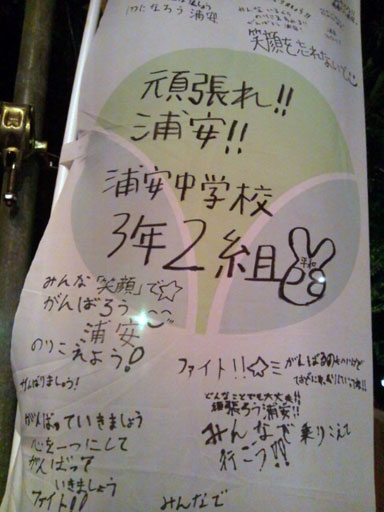 なろう 浦安
笑顔を忘れないで
頑張れ!!
浦安!!
浦安中学校
3年2組
平和
みんな「笑顔」で☆
がんばろう
浦安
のりこえよう!
がんばりましょう!
ファイト!!☆
がんばるのも
どんなことでも大丈夫!!
頑張ろう浦安!!
みんなで乗りこえて
行こう!!
がんばっていきましょう
心を一つにして
がんばって
いきましょう
ファイト!!
みんなで